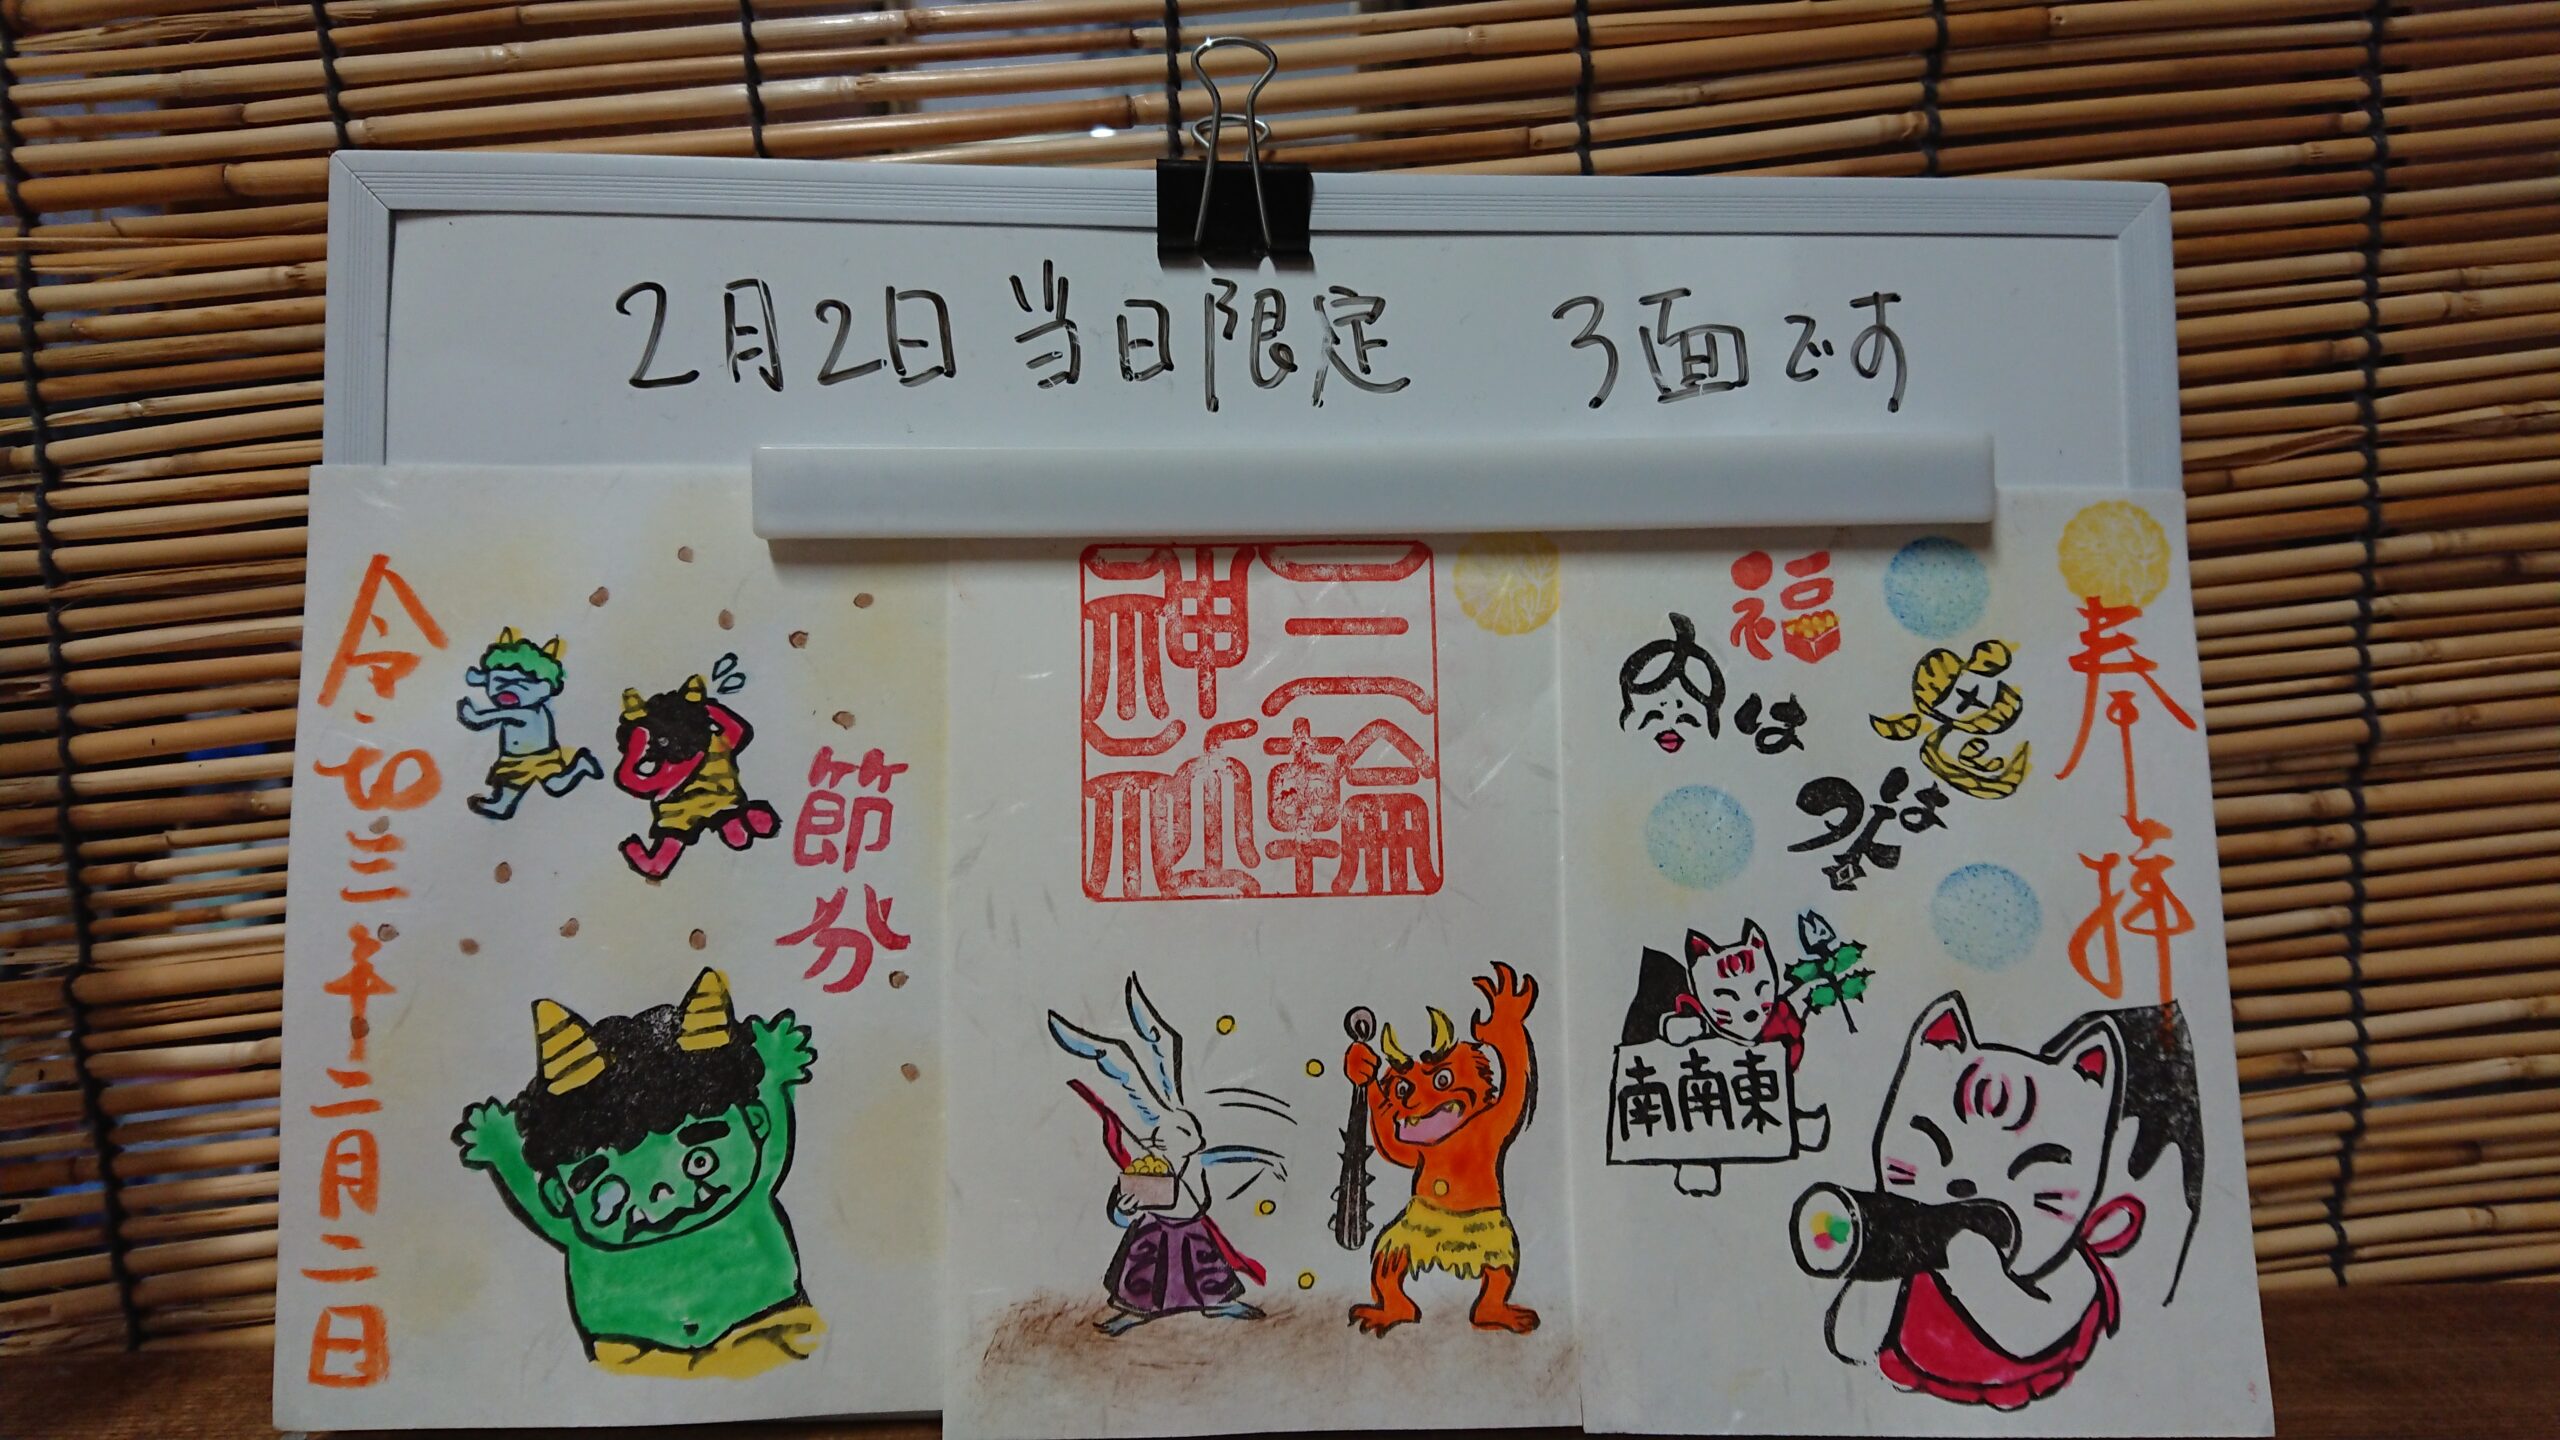 2月2日当日限定　3面です
奉拝
鬼は外
福は内
南南東
三輪
神社
節分
令和三年二月二日